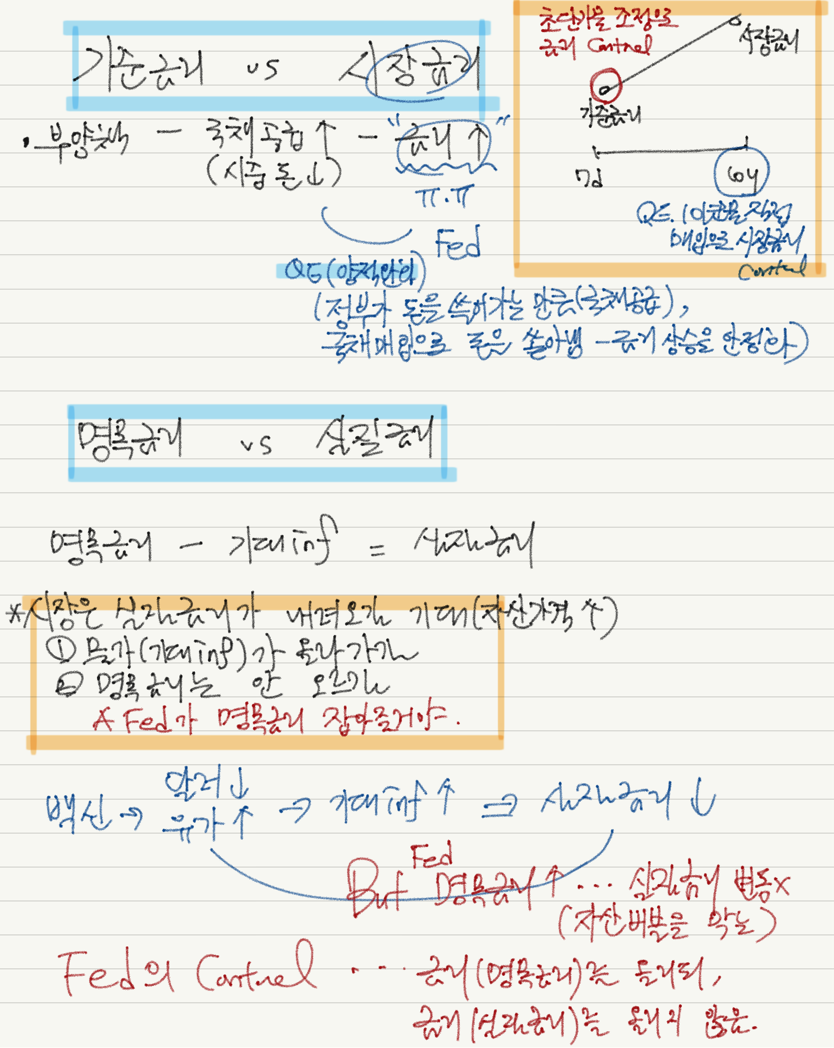 기준금리 vs 시장금리
초단기물 조정으로
금리 Control
시장금리
기준금리
7d
10y
QE. 10년물 직접
매입으로 시장금리
Control
· 부양책 - 국채공급↑ - "금리↑"
(시중 돈↓)
π.π
Fed
QE(양적완화)
(정부가 돈을 쓸어가는 만큼(국채공급),
국채매입으로 돈을 쏟아냄 - 금리 상승을 안정화)
명목금리 vs 실질금리
명목금리 - 기대inf = 실질금리
*시장은 실질금리가 내려오길 기대(자산가격↑)
① 물가(기대inf)가 올라가길
② 명목금리는 안 오르길
☆Fed가 명목금리 잡아줄거야.
백신→
달러↓
유가↑
→ 기대inf↑ ⇒ 실질금리↓
Fed
But 명목금리↑ ··· 실질금리 변동x
(자산버블을 막는)
Fed의 Control ··· 금리(명목금리)는 올리되,
금리(실질금리)는 올리지 않음.